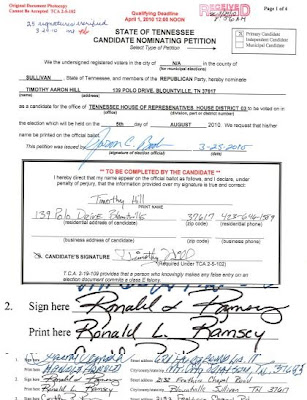 Original Document Photocopy
Cannot Be Accepted TCA 2-5-102
Qualifying Deadline
April 1, 2010 12:00 NOON
RECEIVED
Page 1 of 4
25 signatures verified
3-29-10
STATE OF TENNESSEE
CANDIDATE NOMINATING PETITION
Select Type of Petition
X Primary Candidate
Independent Candidate
Municipal Candidate
We the undersigned registered voters in the city of N/A in the county of
(for municipal elections)
SULLIVAN State of Tennessee, and members of the REPUBLICAN Party, hereby nominate
TIMOTHY AARON HILL 139 POLO DRIVE, BLOUNTVILLE, TN 37617
as a candidate for the office of TENNESSEE HOUSE OF REPRESENATIVES HOUSE DISTRICT 03 to be voted on in
the election which will be held on the 5th day of AUGUST 2010. We request that his
name be printed on the official ballot.
This petition was issued by 3-25-2010
(signature of election official) (date)
** TO BE COMPLETED BY THE CANDIDATE **
I hereby direct that my name appear on the official ballot as follows, and I declare, under
penalty of perjury, that the information provided over my signature is true and correct:
Timothy Hill
PRINT NAME
139 Polo Drive Blountville 37617
(residential address of candidate) (zip code) (residential phone)
(business address of candidate) (zip code) (business phone)
CANDIDATE'S SIGNATURE Timothy Hill
(Required Under TCA 2-5-102)
T.C.A. 2-19-109 provides that a person who knowingly makes any false entry on an
election document commits a class E felony.
2. Sign here Ronald L Ramsey
Print here Ronald L. Ramsey
1. Sign here
Print here
2. Sign here Ronald L Ramsey
Print here Ronald L. Ramsey Blountville Sullivan TN 37617
3. Sign here